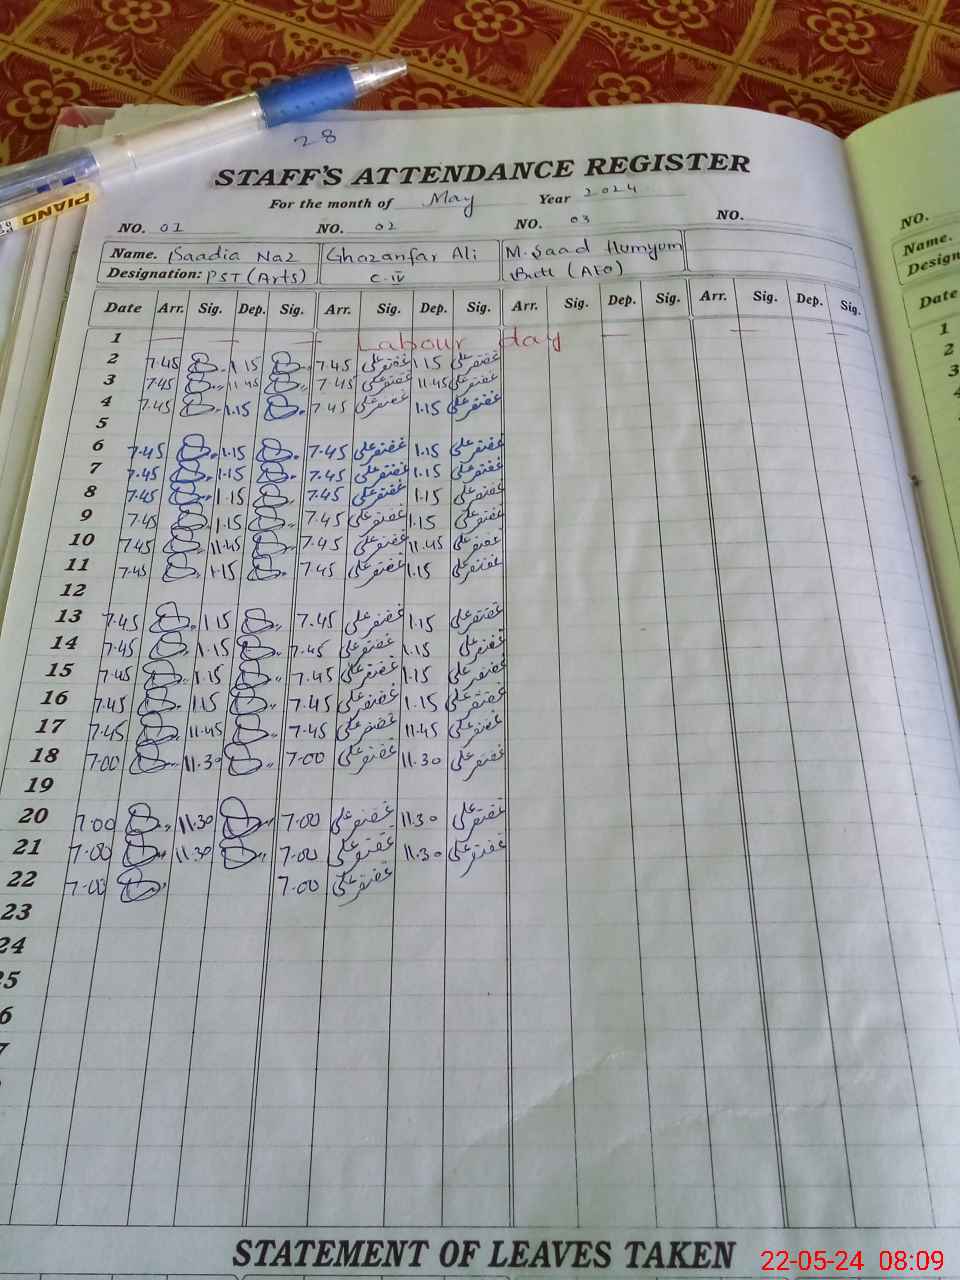 28
STAFF'S ATTENDANCE REGISTER
For the month of May Year 2024
NO. 01 NO. 02 NO. 03 NO.
Name. Saadia Naz Ghazanfar Ali M. Saad Humyum
Designation: PST (Arts) C-IV Butt (AEO)
Date Arr. Sig. Dep. Sig. Arr. Sig. Dep. Sig. Arr. Sig. Dep. Sig. Arr. Sig. Dep. Sig.
1 Labour day
2 7.45 1.15 7.45 غضنفر علی 1.15 غضنفر علی
3 7.45 11.45 7.45 غضنفر علی 11.45 غضنفر علی
4 7.45 1.15 7.45 غضنفر علی 1.15 غضنفر علی
5
6 7.45 1.15 7.45 غضنفر علی 1.15 غضنفر علی
7 7.45 1.15 7.45 غضنفر علی 1.15 غضنفر علی
8 7.45 1.15 7.45 غضنفر علی 1.15 غضنفر علی
9 7.45 1.15 7.45 غضنفر علی 1.15 غضنفر علی
10 7.45 11.45 7.45 غضنفر علی 11.45 غضنفر علی
11 7.45 1.15 7.45 غضنفر علی 1.15 غضنفر علی
12
13 7.45 1.15 7.45 غضنفر علی 1.15 غضنفر علی
14 7.45 1.15 7.45 غضنفر علی 1.15 غضنفر علی
15 7.45 1.15 7.45 غضنفر علی 1.15 غضنفر علی
16 7.45 1.15 7.45 غضنفر علی 1.15 غضنفر علی
17 7.45 11.45 7.45 غضنفر علی 11.45 غضنفر علی
18 7.00 11.30 7.00 غضنفر علی 11.30 غضنفر علی
19
20 7.00 11.30 7.00 غضنفر علی 11.30 غضنفر علی
21 7.00 11.30 7.00 غضنفر علی 11.30 غضنفر علی
22 7.00 7.00 غضنفر علی
23
24
25
6
7
STATEMENT OF LEAVES TAKEN
22-05-24 08:09
PIANO
NO.
Name.
Design
Date
1
2
3